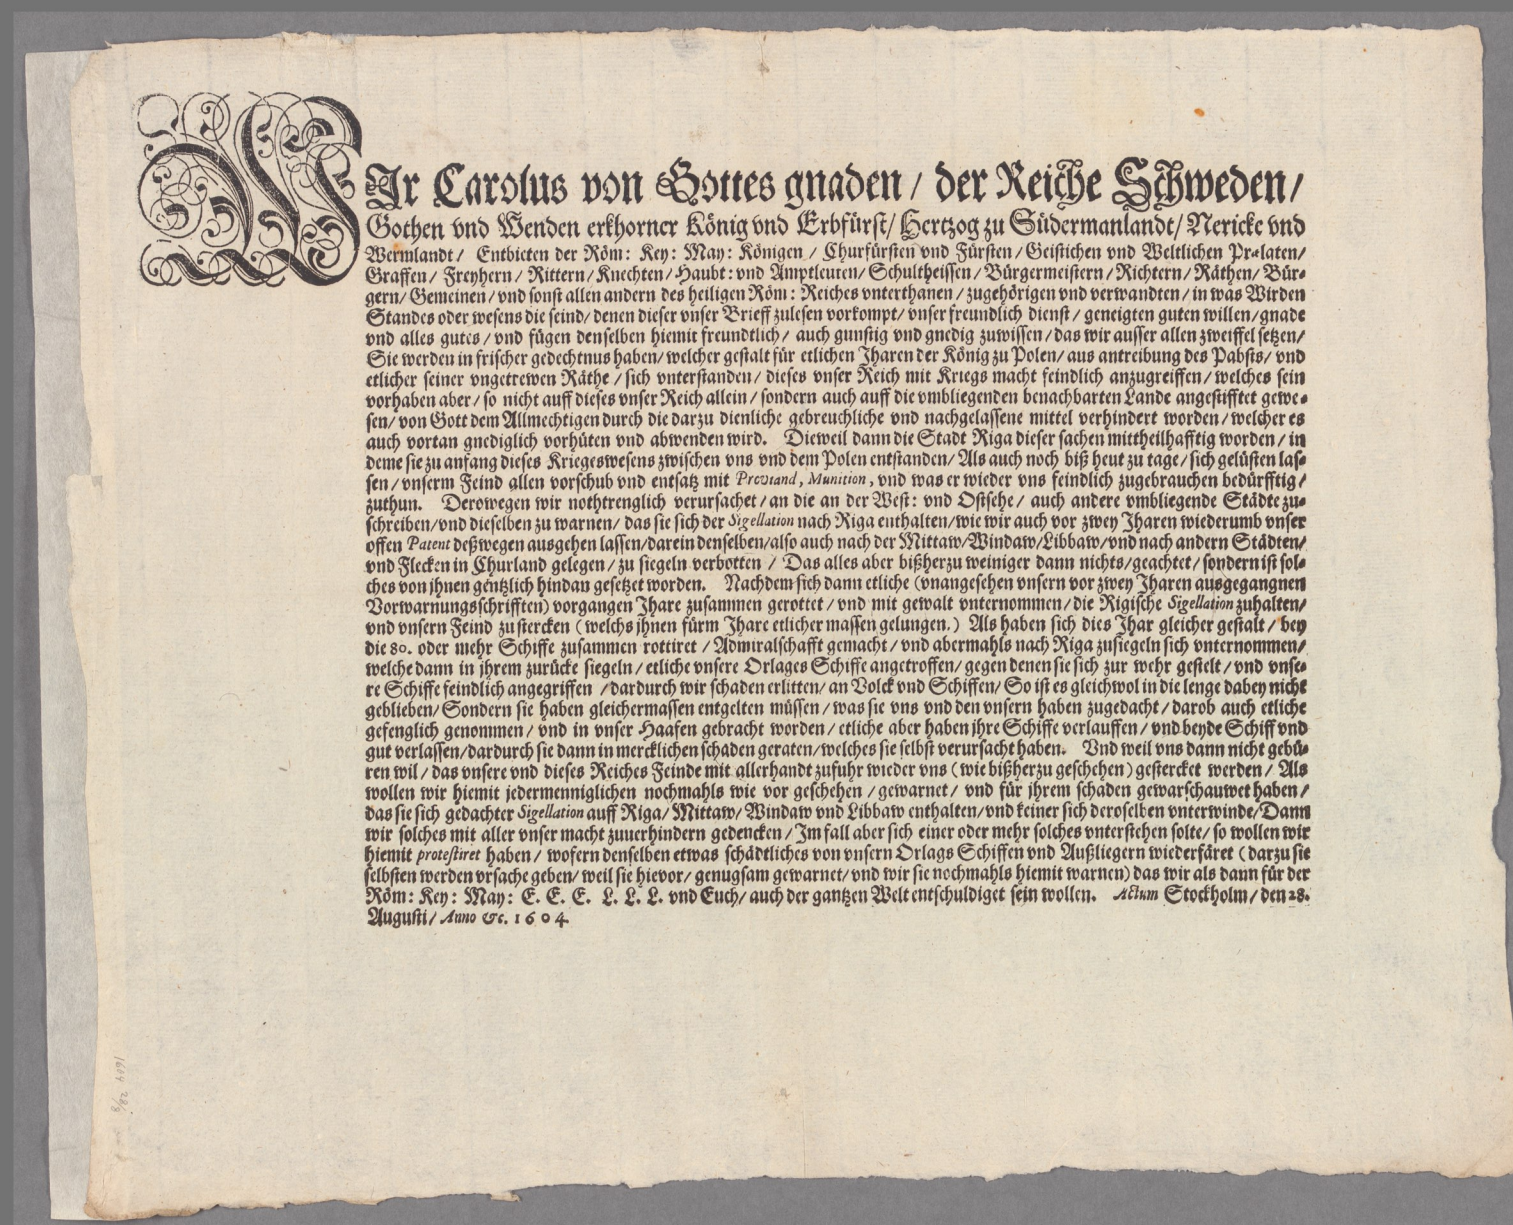 WIr Carolus von Gottes gnaden / der Reiche Schweden /
Gothen vnd Wenden erkhorner König vnd Erbfürst / Hertzog zu Südermanlandt / Nericke vnd
Wermlandt / Entbieten der Röm: Key: May: Königen / Churfürsten vnd Fürsten / Geistichen vnd Weltlichen Prælaten /
Graffen / Freyhern / Rittern / Knechten / Haubt: vnd Amptleuten / Schultheissen / Bürgermeistern / Richtern / Räthen / Bür-
gern / Gemeinen / vnd sonst allen andern des heiligen Röm: Reiches vnterthanen / zugehörigen vnd verwandten / in was Wirden
Standes oder wesens die seind / denen dieser vnser Brieff zulesen vorkompt / vnser freundlich dienst / geneigten guten willen / gnade
vnd alles gutes / vnd fügen denselben hiemit freundtlich / auch gunstig vnd gnedig zuwissen / das wir ausser allen zweiffel setzen /
Sie werden in frischer gedechtnus haben / welcher gestalt für etlichen Jharen der König zu Polen / aus antreibung des Pabsts / vnd
etlicher seiner vngetrewen Räthe / sich vnterstanden / dieses vnser Reich mit Kriegs macht feindlich anzugreiffen / welches sein
vorhaben aber / so nicht auff dieses vnser Reich allein / sondern auch auff die vmbliegenden benachbarten Lande angestifftet gewe-
sen / von Gott dem Allmechtigen durch die darzu dienliche gebreuchliche vnd nachgelassene mittel verhindert worden / welcher es
auch vortan gnediglich vorhüten vnd abwenden wird. Dieweil dann die Stadt Riga dieser sachen mittheilhafftig worden / in
deme sie zu anfang dieses Kriegeswesens zwischen vns vnd dem Polen entstanden / Als auch noch biß heut zu tage / sich gelüsten las-
sen / vnserm Feind allen vorschub vnd entsatz mit Proviand, Munition, vnd was er wieder vns feindlich zugebrauchen bedürfftig /
zuthun. Derowegen wir nothtrenglich verursachet / an die an der West: vnd Ostsehe / auch andere vmbliegende Städte zu-
schreiben / vnd dieselben zu warnen / das sie sich der Sigellation nach Riga enthalten / wie wir auch vor zwey Jharen wiederumb vnser
offen Patent deßwegen ausgehen lassen / darein denselben / also auch nach der Mittaw / Windaw / Libbaw / vnd nach andern Städten /
vnd Flecken in Churland gelegen / zu siegeln verbotten / Das alles aber bißherzu weiniger dann nichts / geachtet / sondern ist sol-
ches von jhnen gentzlich hindan gesetzet worden. Nachdem sich dann etliche (vnangesehen vnsern vor zwey Jharen ausgegangnen
Vorwarnungsschrifften) vorgangen Jhare zusammen gerottet / vnd mit gewalt vnternommen / die Rigische Sigellation zuhalten /
vnd vnsern Feind zu stercken (welchs jhnen fürm Jhare etlicher massen gelungen.) Als haben sich dies Jhar gleicher gestalt / bey
die 80. oder mehr Schiffe zusammen rottiret / Admiralschafft gemacht / vnd abermahls nach Riga zusiegeln sich vnternommen /
welche dann in jhrem zurücke siegeln / etliche vnsere Orlages Schiffe angetroffen / gegen denen sie sich zur wehr gestelt / vnd vnse-
re Schiffe feindlich angegriffen / dardurch wir schaden erlitten / an Volck vnd Schiffen / So ist es gleichwol in die lenge dabey nicht
geblieben / Sondern sie haben gleichermassen entgelten müssen / was sie vns vnd den vnsern haben zugedacht / darob auch etliche
gefenglich genommen / vnd in vnser Haafen gebracht worden / etliche aber haben jhre Schiffe verlauffen / vnd beyde Schiff vnd
gut verlassen / dardurch sie dann in mercklichen schaden geraten / welches sie selbst verursacht haben. Vnd weil vns dann nicht gebü-
ren wil / das vnsere vnd dieses Reiches Feinde mit allerhandt zufuhr wieder vns (wie bißherzu geschehen) gestercket werden / Als
wollen wir hiemit jedermenniglichen nochmahls wie vor geschehen / gewarnet / vnd für jhrem schaden gewarschauwet haben /
das sie sich gedachter Sigellation auff Riga / Mittaw / Windaw vnd Libbaw enthalten / vnd keiner sich deroselben vnterwinde / Dann
wir solches mit aller vnser macht zuuerhindern gedencken / Im fall aber sich einer oder mehr solches vnterstehen solte / so wollen wir
hiemit protestiret haben / wofern denselben etwas schädtliches von vnsern Orlags Schiffen vnd Außliegern wiederfäret (darzu sie
selbsten werden vrsache geben / weil sie hievor / genugsam gewarnet / vnd wir sie nochmahls hiemit warnen) das wir als dann für der
Röm: Key: May: E. E. E. L. L. L. vnd Euch / auch der gantzen Welt entschuldiget sein wollen. Actum Stockholm / den 28.
Augusti / Anno &c. 1604
1604 28/8